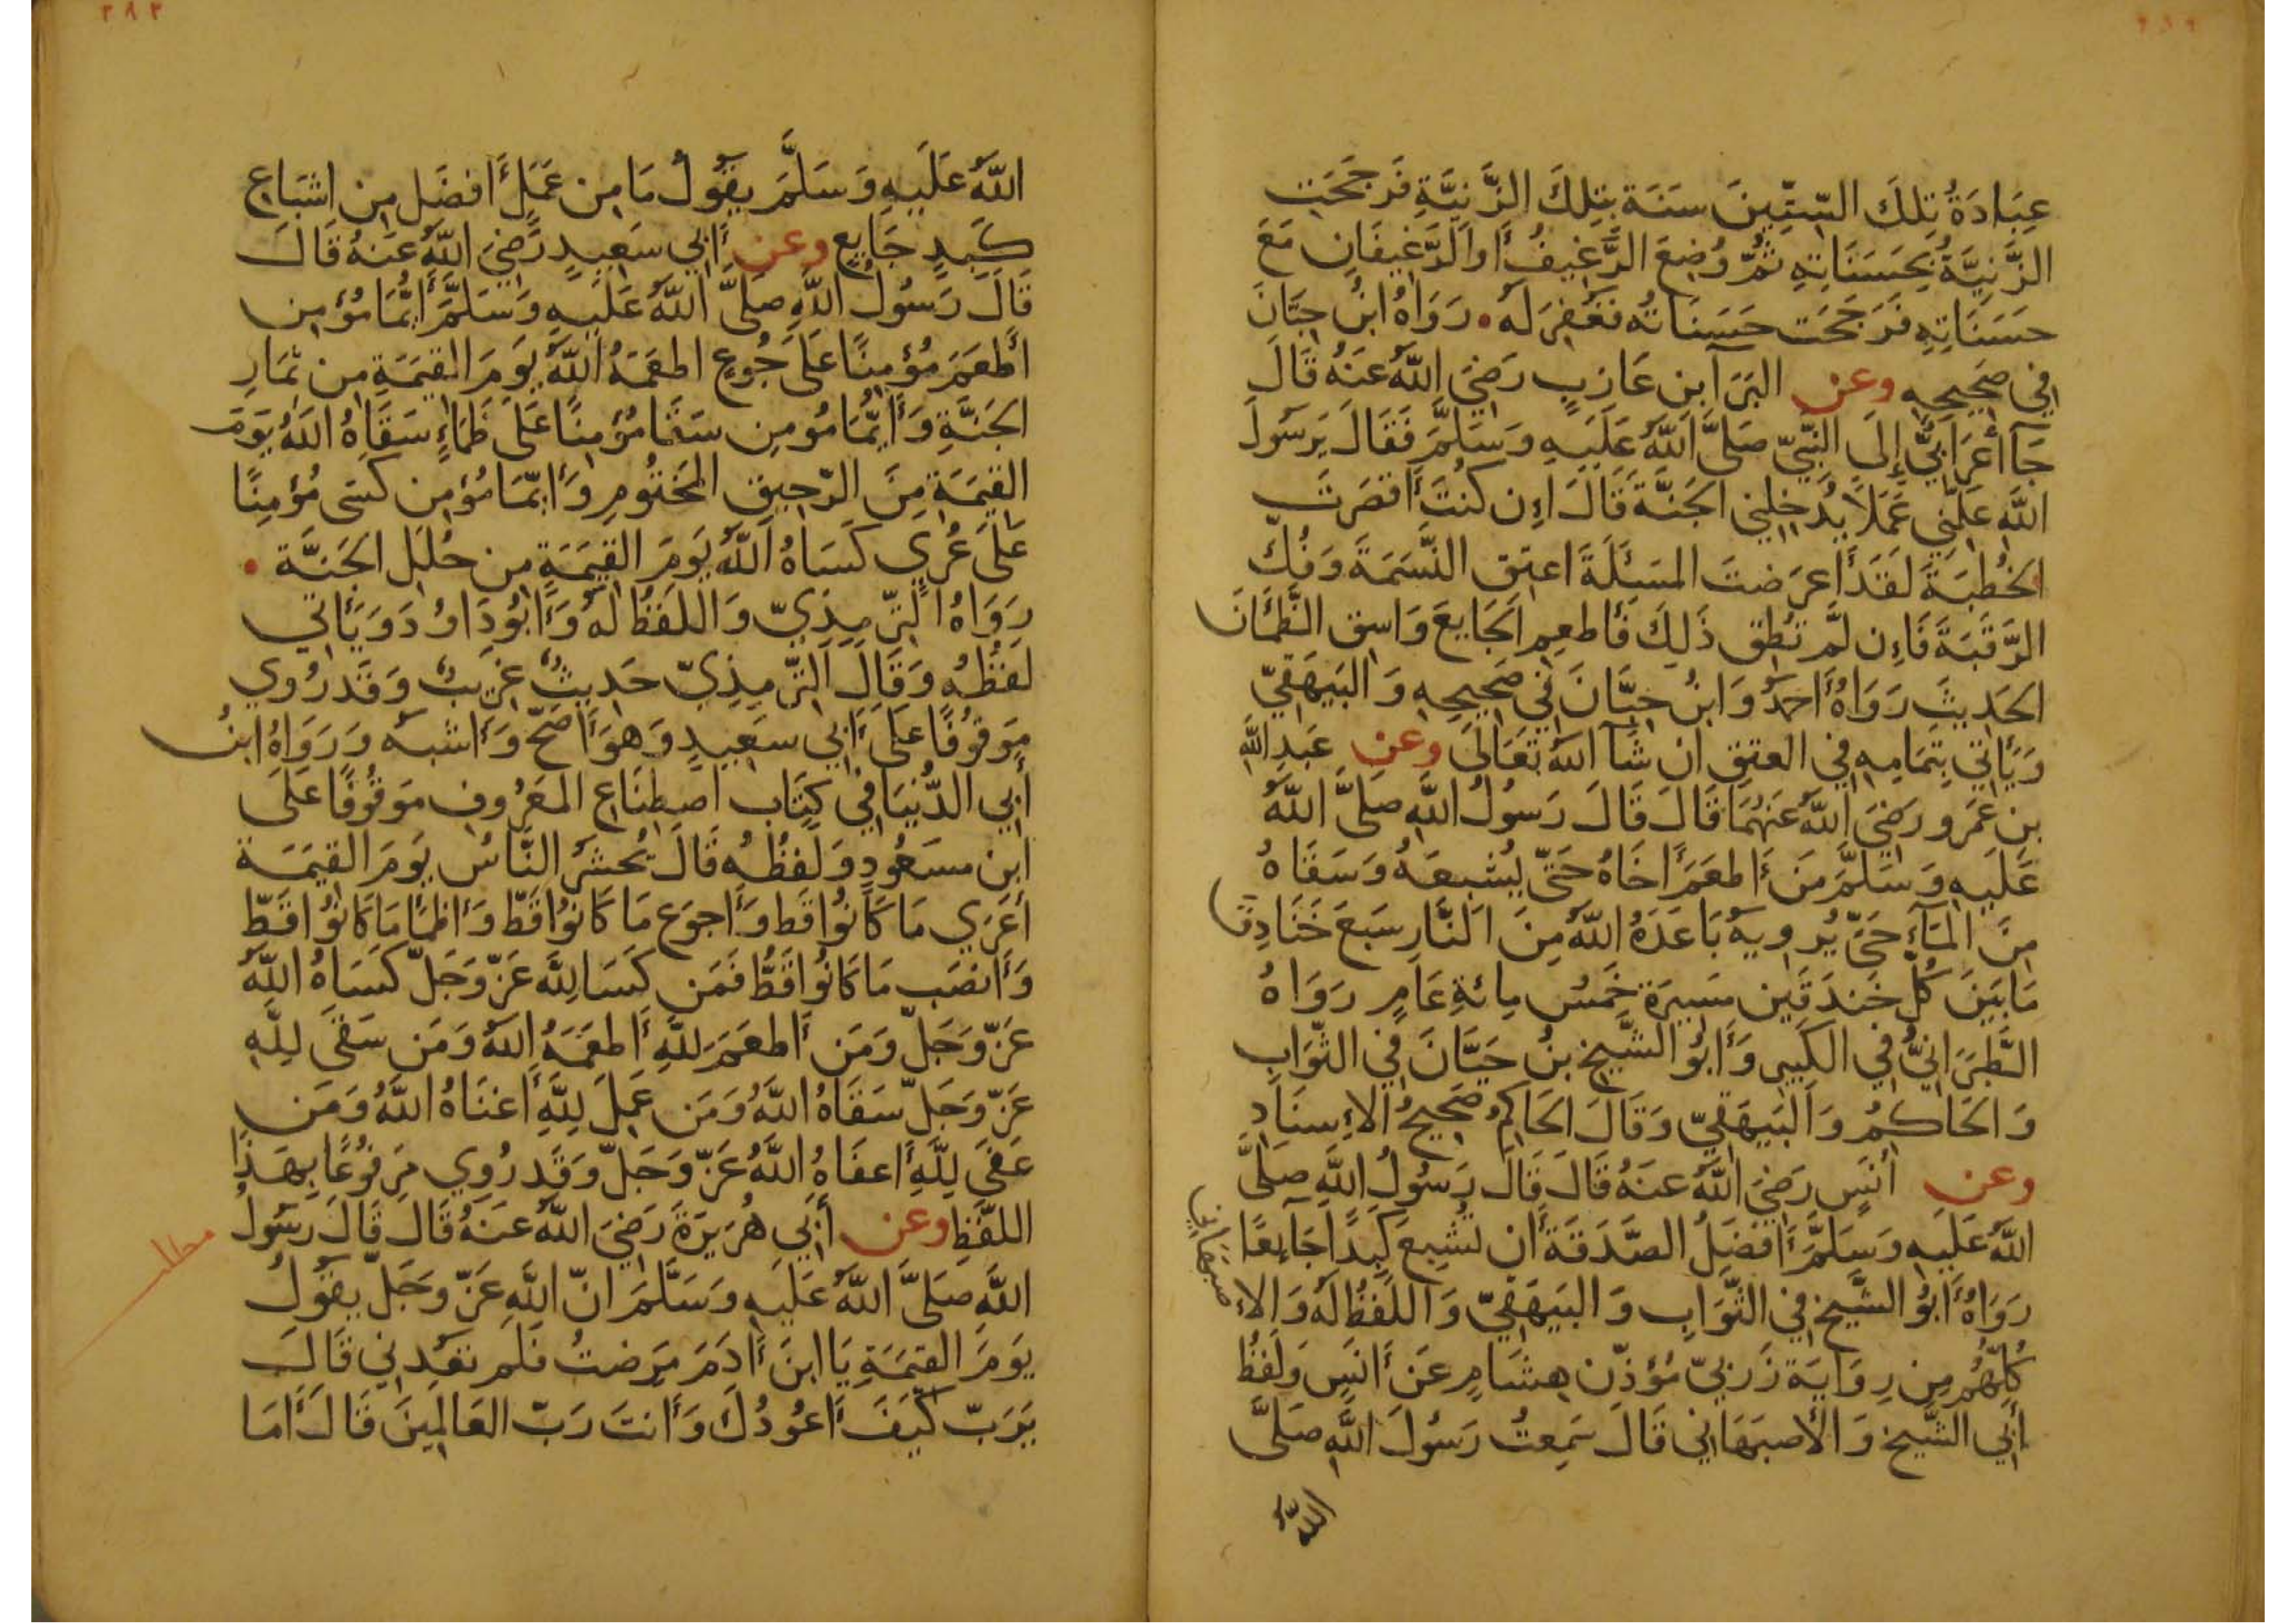 عِبَادَةُ تِلكَ السِّتِّينَ سَنَة بِتِلكَ الزَّنيَّةِ فَرَجَحَت
الزَّنِيَّةُ بِحَسَنَاتِهِ ثُمَّ وُضِعَ الرَّغِيفُ أَو الرَّغِيفَانِ مَعَ
حَسَنَاتِهِ فَرَجَحَت حَسَنَاتُه فَغُفِرَ لَه . رَوَاهُ ابنُ حِبَّانَ
في صَحِيحِهِ وعن البَرَآ بن عَازِبٍ رَضِيَ اللَّهُ عَنهُ قَالَ
جَآ أَعرَابِيٌّ إِلَى النَّبِيِّ صَلَّى اللَّهُ عَلَيهِ وَسَلَّمَ فَقَالَ يَرَسُولَ
اللَّهِ عَلِّمنِي عَمَلًا يُدخِلنِي الجَنَّةَ قَالَ إِن كُنتَ أَقصَرتَ
الخُطبَةَ لَقَد أَعرَضتَ المَسئَلَةَ اعتِق النَّسَمَةَ وَفُكَّ
الرَّقَبَةَ فَإِن لَم تُطِق ذَلِكَ فَأَطعِم الجَايِعَ وَاسقِ الظَّمئَانَ
الحَدِيثَ رَوَاهُ أَحمَدُ وَابنُ حِبَّانَ فِي صَحِيحِهِ وَالبَيهَقِيّ
وَيَأتِي بِتَمَامِهِ فِي العِتقِ ان شَآ اللهُ تَعَالَى وعن عَبدِ اللَّهِ
بنِ عَمرو رَضِيَ اللَّهُ عَنهُمَا قَالَ قَالَ رَسُولُ اللَّهِ صَلَّى اللَّهُ
عَلَيهِ وَسَلَّمَ مَن أَطعَمَ أَخَاهُ حَتَّى يُشبِعَهُ وَسَقَاهُ
مِنَ المَآءِ حَتَّى يُروِيَهُ بَاعَدَهُ اللَّهُ مِنَ النَّارِ سَبعَ خَنَادِقَ
مَا بَينَ كُلِّ خَندَقَينِ مَسِيرَة خَمسُ مِائَةِ عَامٍ رَوَاهُ
الطَّبَرَانِيُّ فِي الكَبِيرِ وَأَبُو الشَّيخِ بنُ حَيَّانَ فِي الثَّوَابِ
وَالحَاكِمُ وَالبَيهَقِيّ وَقَالَ الحَاكِمُ صَحِيحُ الإِسنَادِ
وعن أَنَسٍ رَضِيَ اللَّهُ عَنهُ قَالَ قَالَ رَسُولُ اللَّهِ صَلَّى
اللَّهُ عَلَيهِ وَسَلَّمَ أَفضَلُ الصَّدَقَةِ أَن تُشبِعَ كَبِدًا جَآئِعًا
رَوَاهُ أَبُو الشَّيخِ فِي الثَّوَابِ وَالبَيهَقِيّ وَاللَّفظُ لَهُ وَالإِ
صبَهَانِي
كُلُّهُم مِن رِوَايَة زَربِيّ مُؤَذِّن هِشَامٍ عَن أَنَسٍ وَلَفظُ
أَبِي الشَّيخِ وَالأَصبَهَانِي قَالَ سَمِعتُ رَسُولَ اللَّهِ صَلَّى
اللَّهُ
٢٨٢
اللَّهُ عَلَيهِ وَسَلَّمَ يقُولُ مَا مِن عَمَلٍ أَفضَل مِن اشبَاعِ
كَبِدٍ جَايِعٍ وعن أَبِي سَعِيدٍ رَضِيَ اللَّهُ عَنهُ قَالَ
قَالَ رَسُولُ اللَّهِ صَلَّى اللَّهُ عَلَيهِ وَسَلَّمَ أَيُّمَا مُؤمِن
أَطعَمَ مُؤمِنًا عَلَى جُوعٍ اطعَمَهُ اللَّهُ يَومَ القِيَمَةِ مِن ثِمَارِ
الجَنَّةِ وَأَيُّمَا مُومِن سَقَا مُؤمِنًا عَلَى ظَمَاءٍ سَقَاهُ اللَّهُ يَومَ
القِيَمَةِ مِنَ الرَّحِيقِ المَختُومِ وَأَيّمَا مُؤمِن كَسَى مُؤمِنًا
عَلَى عُريٍ كَسَاهُ اللَّهُ يَومَ القِيَمَةِ مِن حُلَلِ الجَنَّة .
رَوَاهُ التِّرمِذِيّ وَاللَّفظُ لَهُ وَأَبُو دَاوُد وَيَأتِي
لَفظُهُ وَقَالَ التِّرمِذِيّ حَدِيثٌ غَرِيبٌ وَقَد رُوي
مَوقُوفًا عَلَى أَبِي سَعِيدٍ وَهوَ أَصَحّ وَأَشبَه وَرَوَاهُ ابنُ
أَبِي الدُّنيَا فِي كِتَاب اصطِنَاعِ المَعرُوفِ مَوقُوفًا عَلَى
ابنِ مسعُودٍ وَلَفظُهُ قَالَ يُحشَرُ النَّاسُ يَومَ القِيَمَةِ
أَعرَي مَا كَانُوا قَط وَأَجوَع مَا كَانُوا قَطّ وَأَظمَأ مَا كَانُوا قَطّ
وَأَنصَب مَا كَانُوا قَطُّ فَمَن كَسَا لِلَّهِ عَزّ وَجَلّ كَسَاهُ اللَّهُ
عَزّ وَجَلّ وَمَن أَطعَمَ لِلَّهِ أَطعَمَهُ اللَّهُ وَمَن سَقَى لِلَّهِ
عَزّ وَجَلّ سَقَاهُ اللَّهُ وَمَن عَمِلَ لِلَّهِ أَغنَاهُ اللَّهُ وَمَن
عَفَى لِلَّهِ أَعفَاهُ اللَّهُ عَزّ وَجَلّ وَقَد رُوِي مَرفُوعًا بِهَذَا
اللفَّظِ وعن أَبِي هُرَيرَةَ رَضِيَ اللَّهُ عَنهُ قَالَ قَالَ رَسُولُ
مطلب
اللَّهِ صَلَّى اللَّهُ عَلَيهِ وَسَلَّمَ انّ اللَّهَ عَزّ وَجَلّ يقُولُ
يَومَ القِيَمَةِ يَا ابنَ أَدَمَ مَرِضتُ فَلَم تَعُدنِي قَالَ
يَرَبّ كَيفَ أَعُودُكَ وَأَنتَ رَبّ العَالَمِينَ قَالَ أَمَا